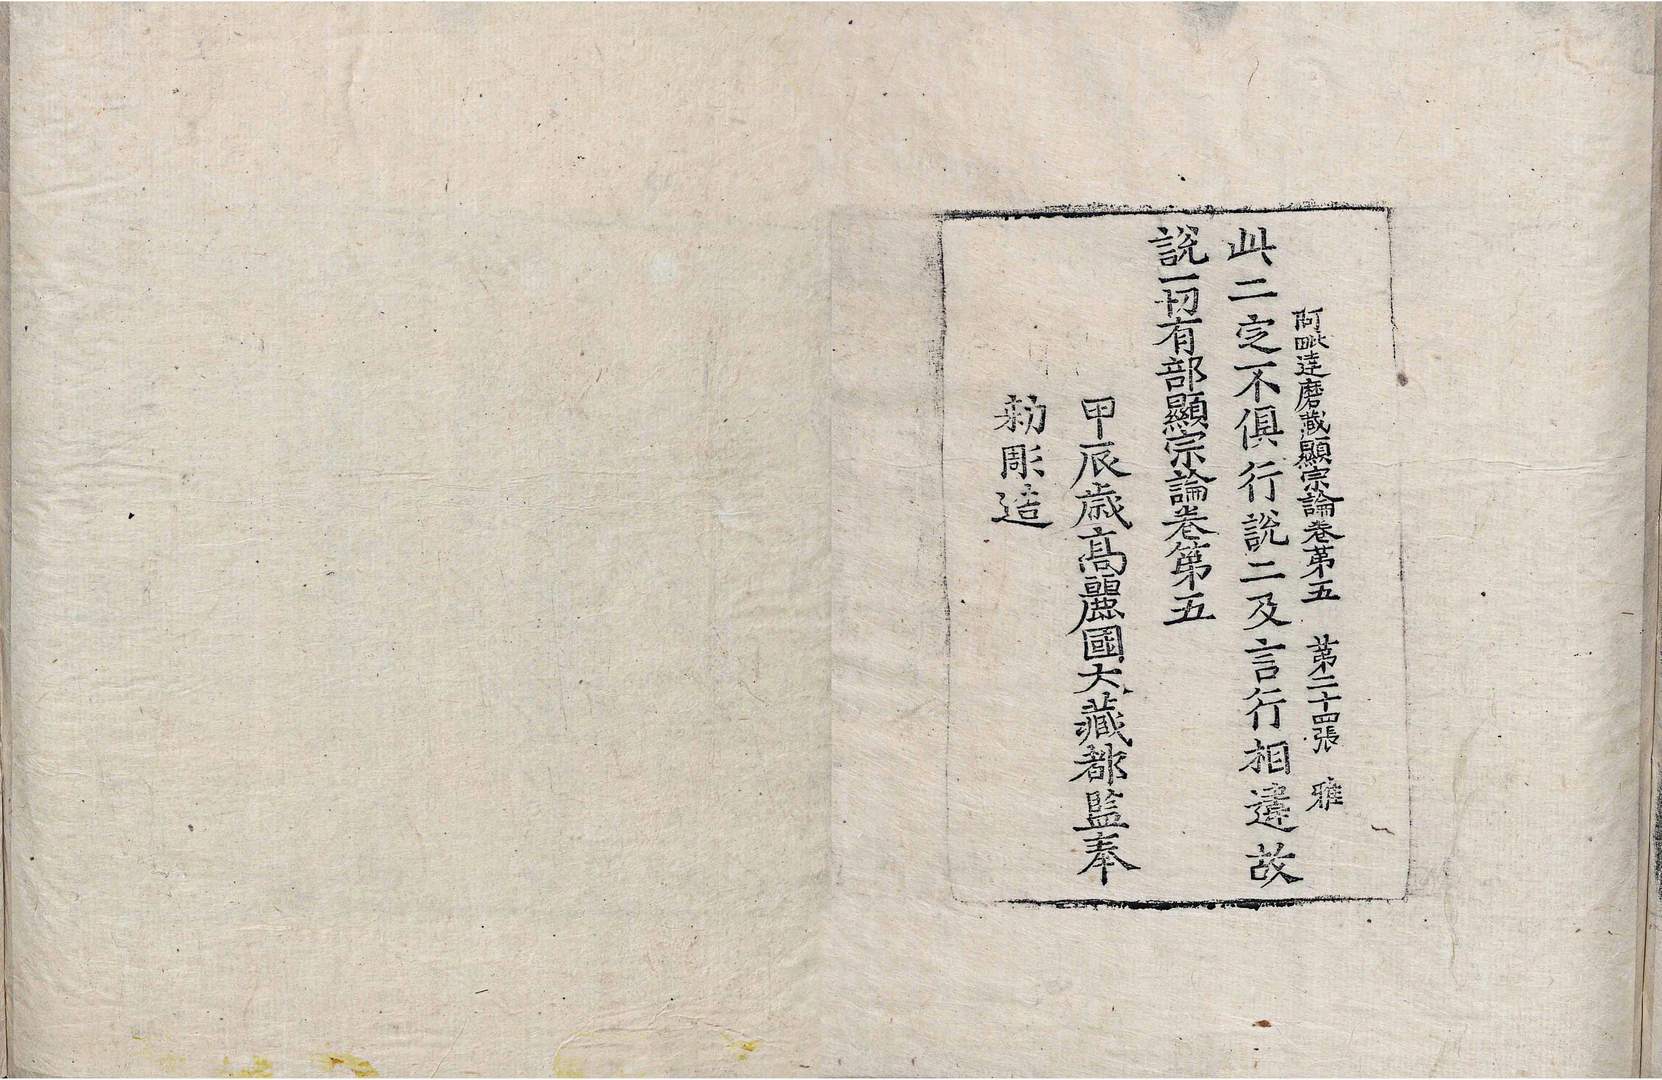 阿毗達磨藏顯宗論卷第五 第二十四張 雅
此二定不俱行說二及言行相違故
說一切有部顯宗論卷第五
甲辰歲高麗國大藏都監奉
勑彫造